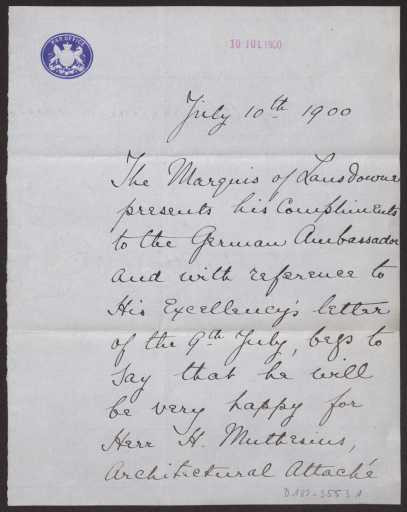 WAR OFFICE
10 JUL 1900
July 10th 1900
The Marquis of Lansdowne
presents his Compliments
to the German Ambassador
and with reference to
His Excellency's letter
of the 9th July, begs to
say that he will
be very happy for
Herr H. Muthesius,
Architectural Attaché
D 102-3553 A